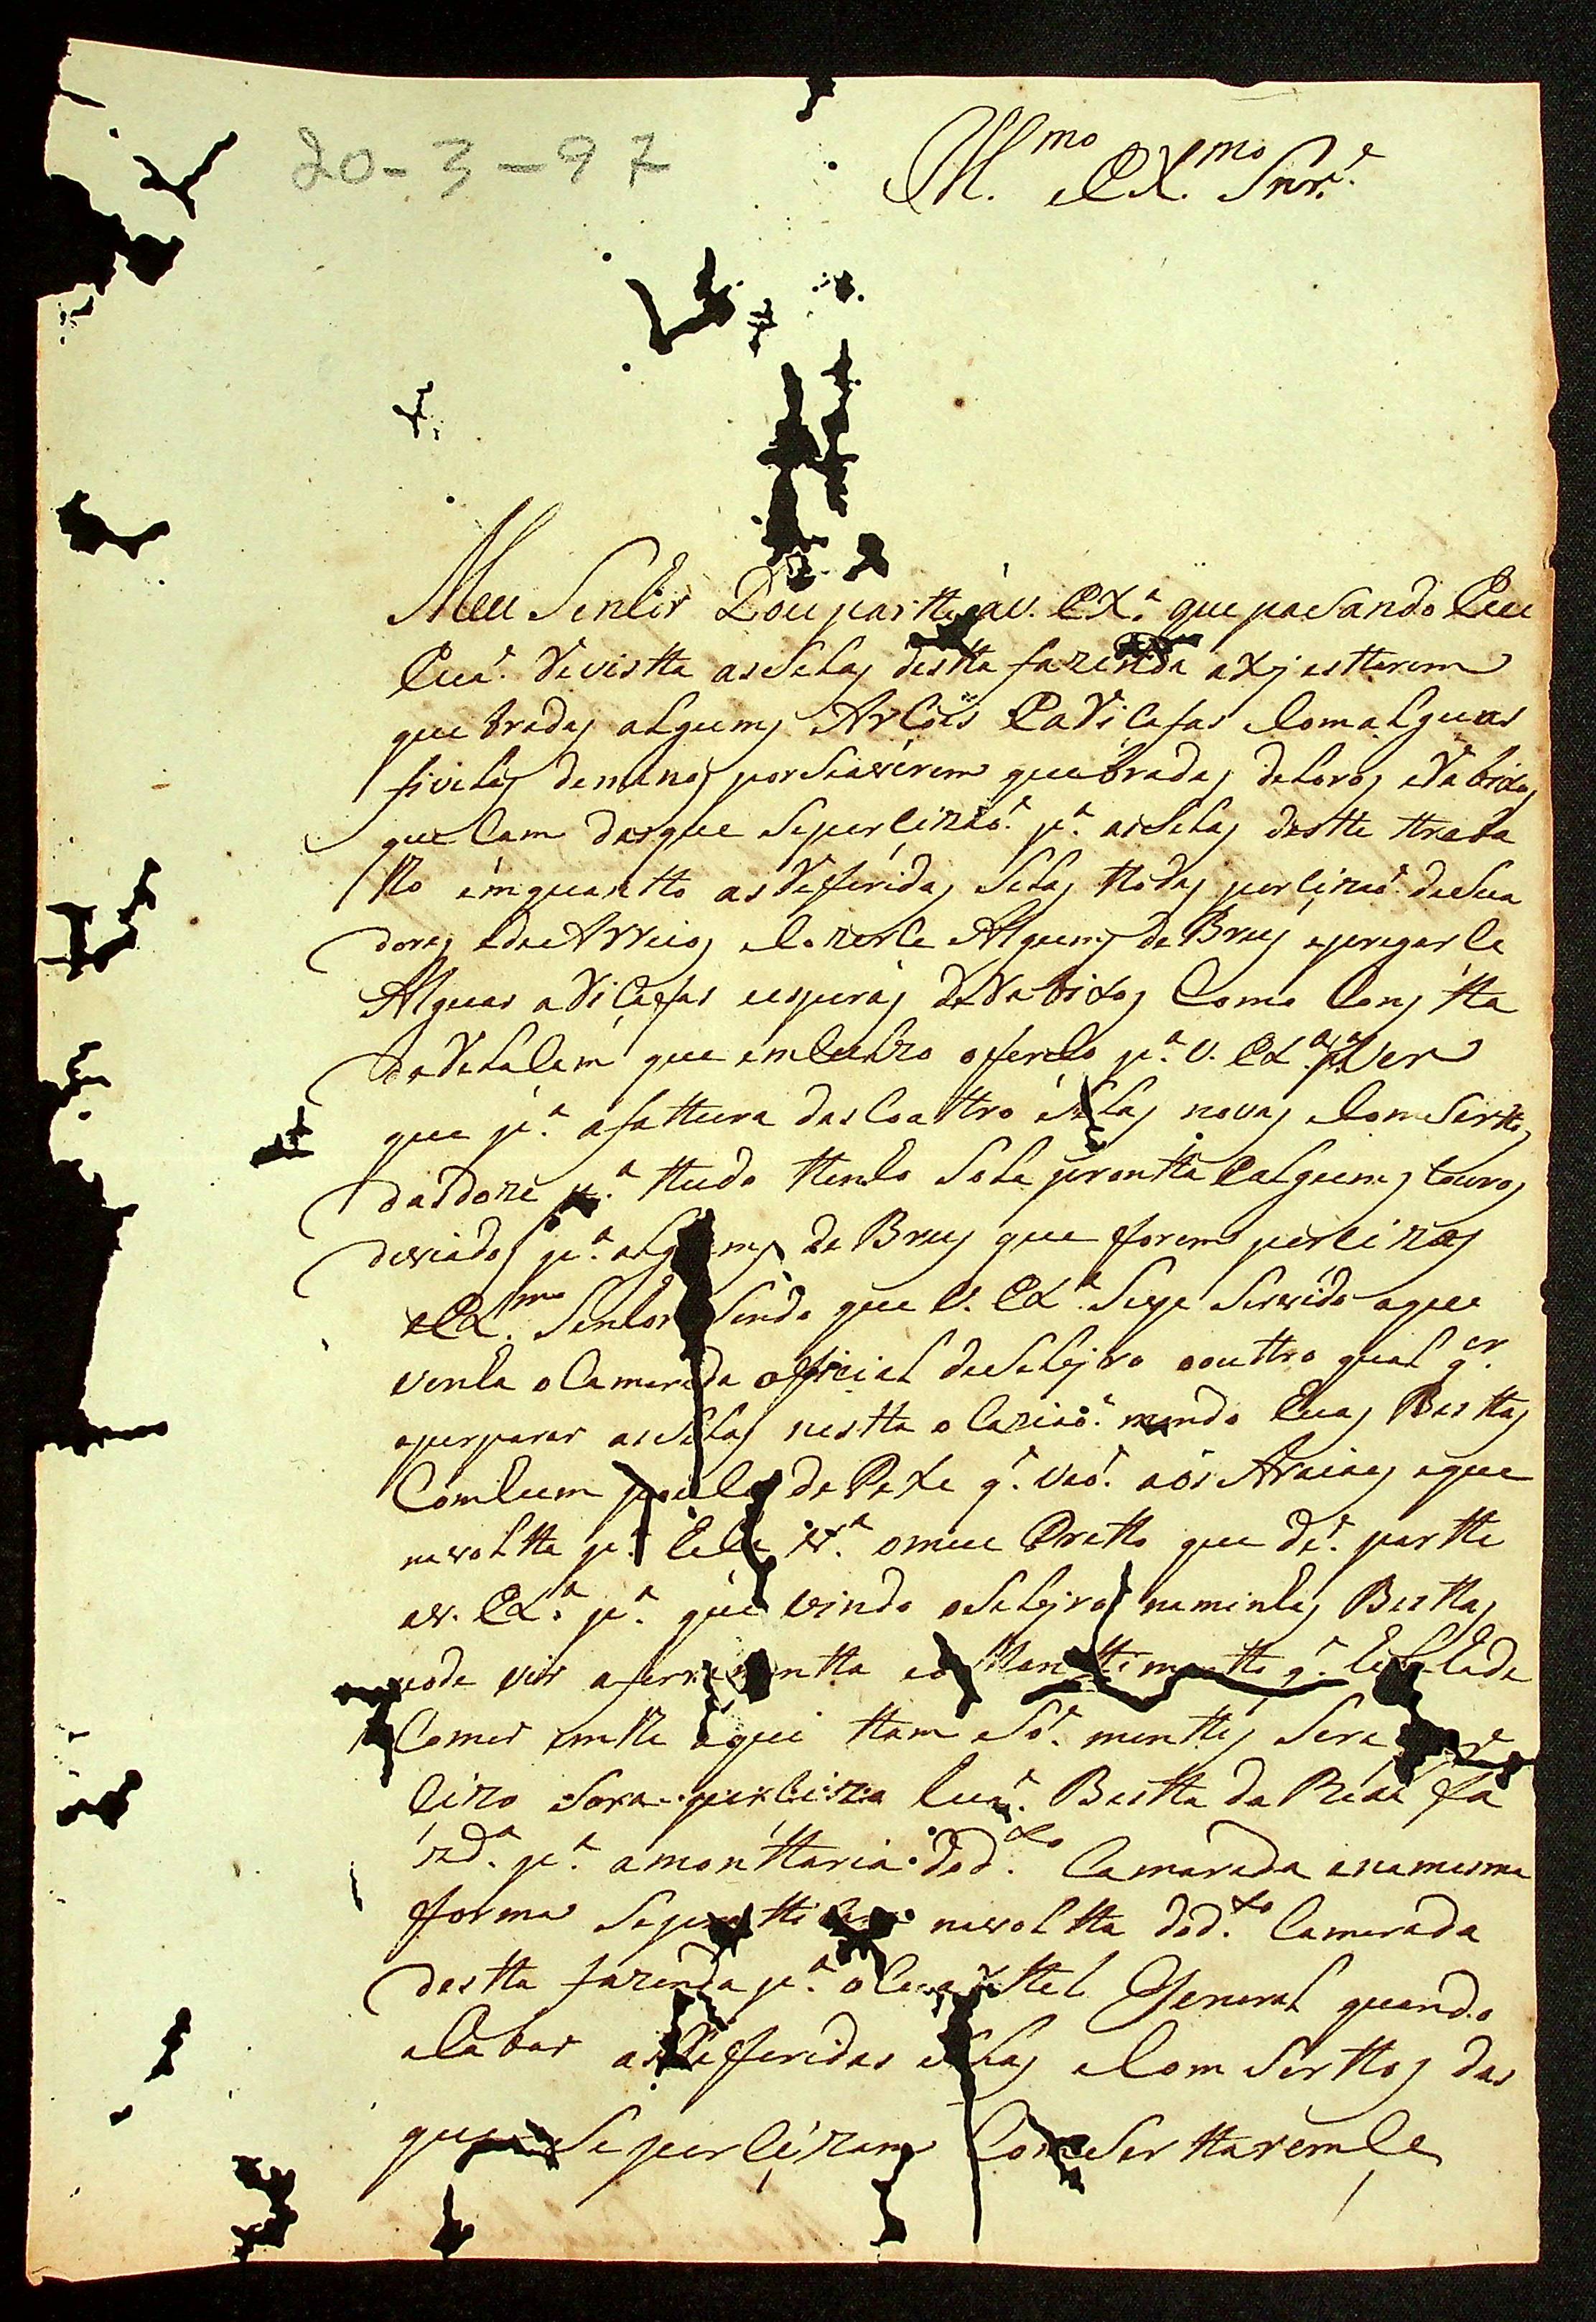 20-3-97
Il.mo e Ex.mo Snr.e
Meu Senhor Dou partte av. Ex.a que pasando Eu
huã Revistta as Selas destta fazenda axj esttarem
quebradas algums Arçõis e adi casas com algumas
fivelas de menos por se averem quebradas de Loros e Rabixos
que cam das que se percizaõ p.a as Selas deste ttraba
lho emquantto as Refferidas Selas ttodas percizaõ de Sua
dores e de Arreios e cozerce Algums da Brus e pregarce
Alguas adicasas e esporas de Rabixos Como Consta
da Relasam que emcluzo ofereço p.a V. Ex.a Ver
que p.a a fattura das Coattro Selas novas e Comserttos
das doze p.a ttudo ttenho Sola prontta e algums Couros
de viados p.a algums da Brus que forem percizos
e Ex.mo Senhor Sendo que V. Ex.a Seja Servido a que
venha o Camarada official de Selejro o outtro qual q.er
a preparar as Selas nestta ocaziaõ mando huas Besttas
Com hum de Pexe q.e vaõ aos Araias e que
na voltta p.a o meu Pretto que dê partte
a v. Ex.a p.a que vindo o Selejro na minhas Besttas
pode vir a ferramentta e o Manttimentto q.e
Comer emtte aqui ttam e Só menttes Será
cizo percizo huã Bestta da Reál fa
zd.a p.a a monttaria dod.to Camarada e na mesma
fforma na voltta dod.to Camarada
destta fazenda p.a o Cuarttel General quando
acabar as Refferidas Selas e Com Serttos das
que Se percizam Com Serttarem Ce